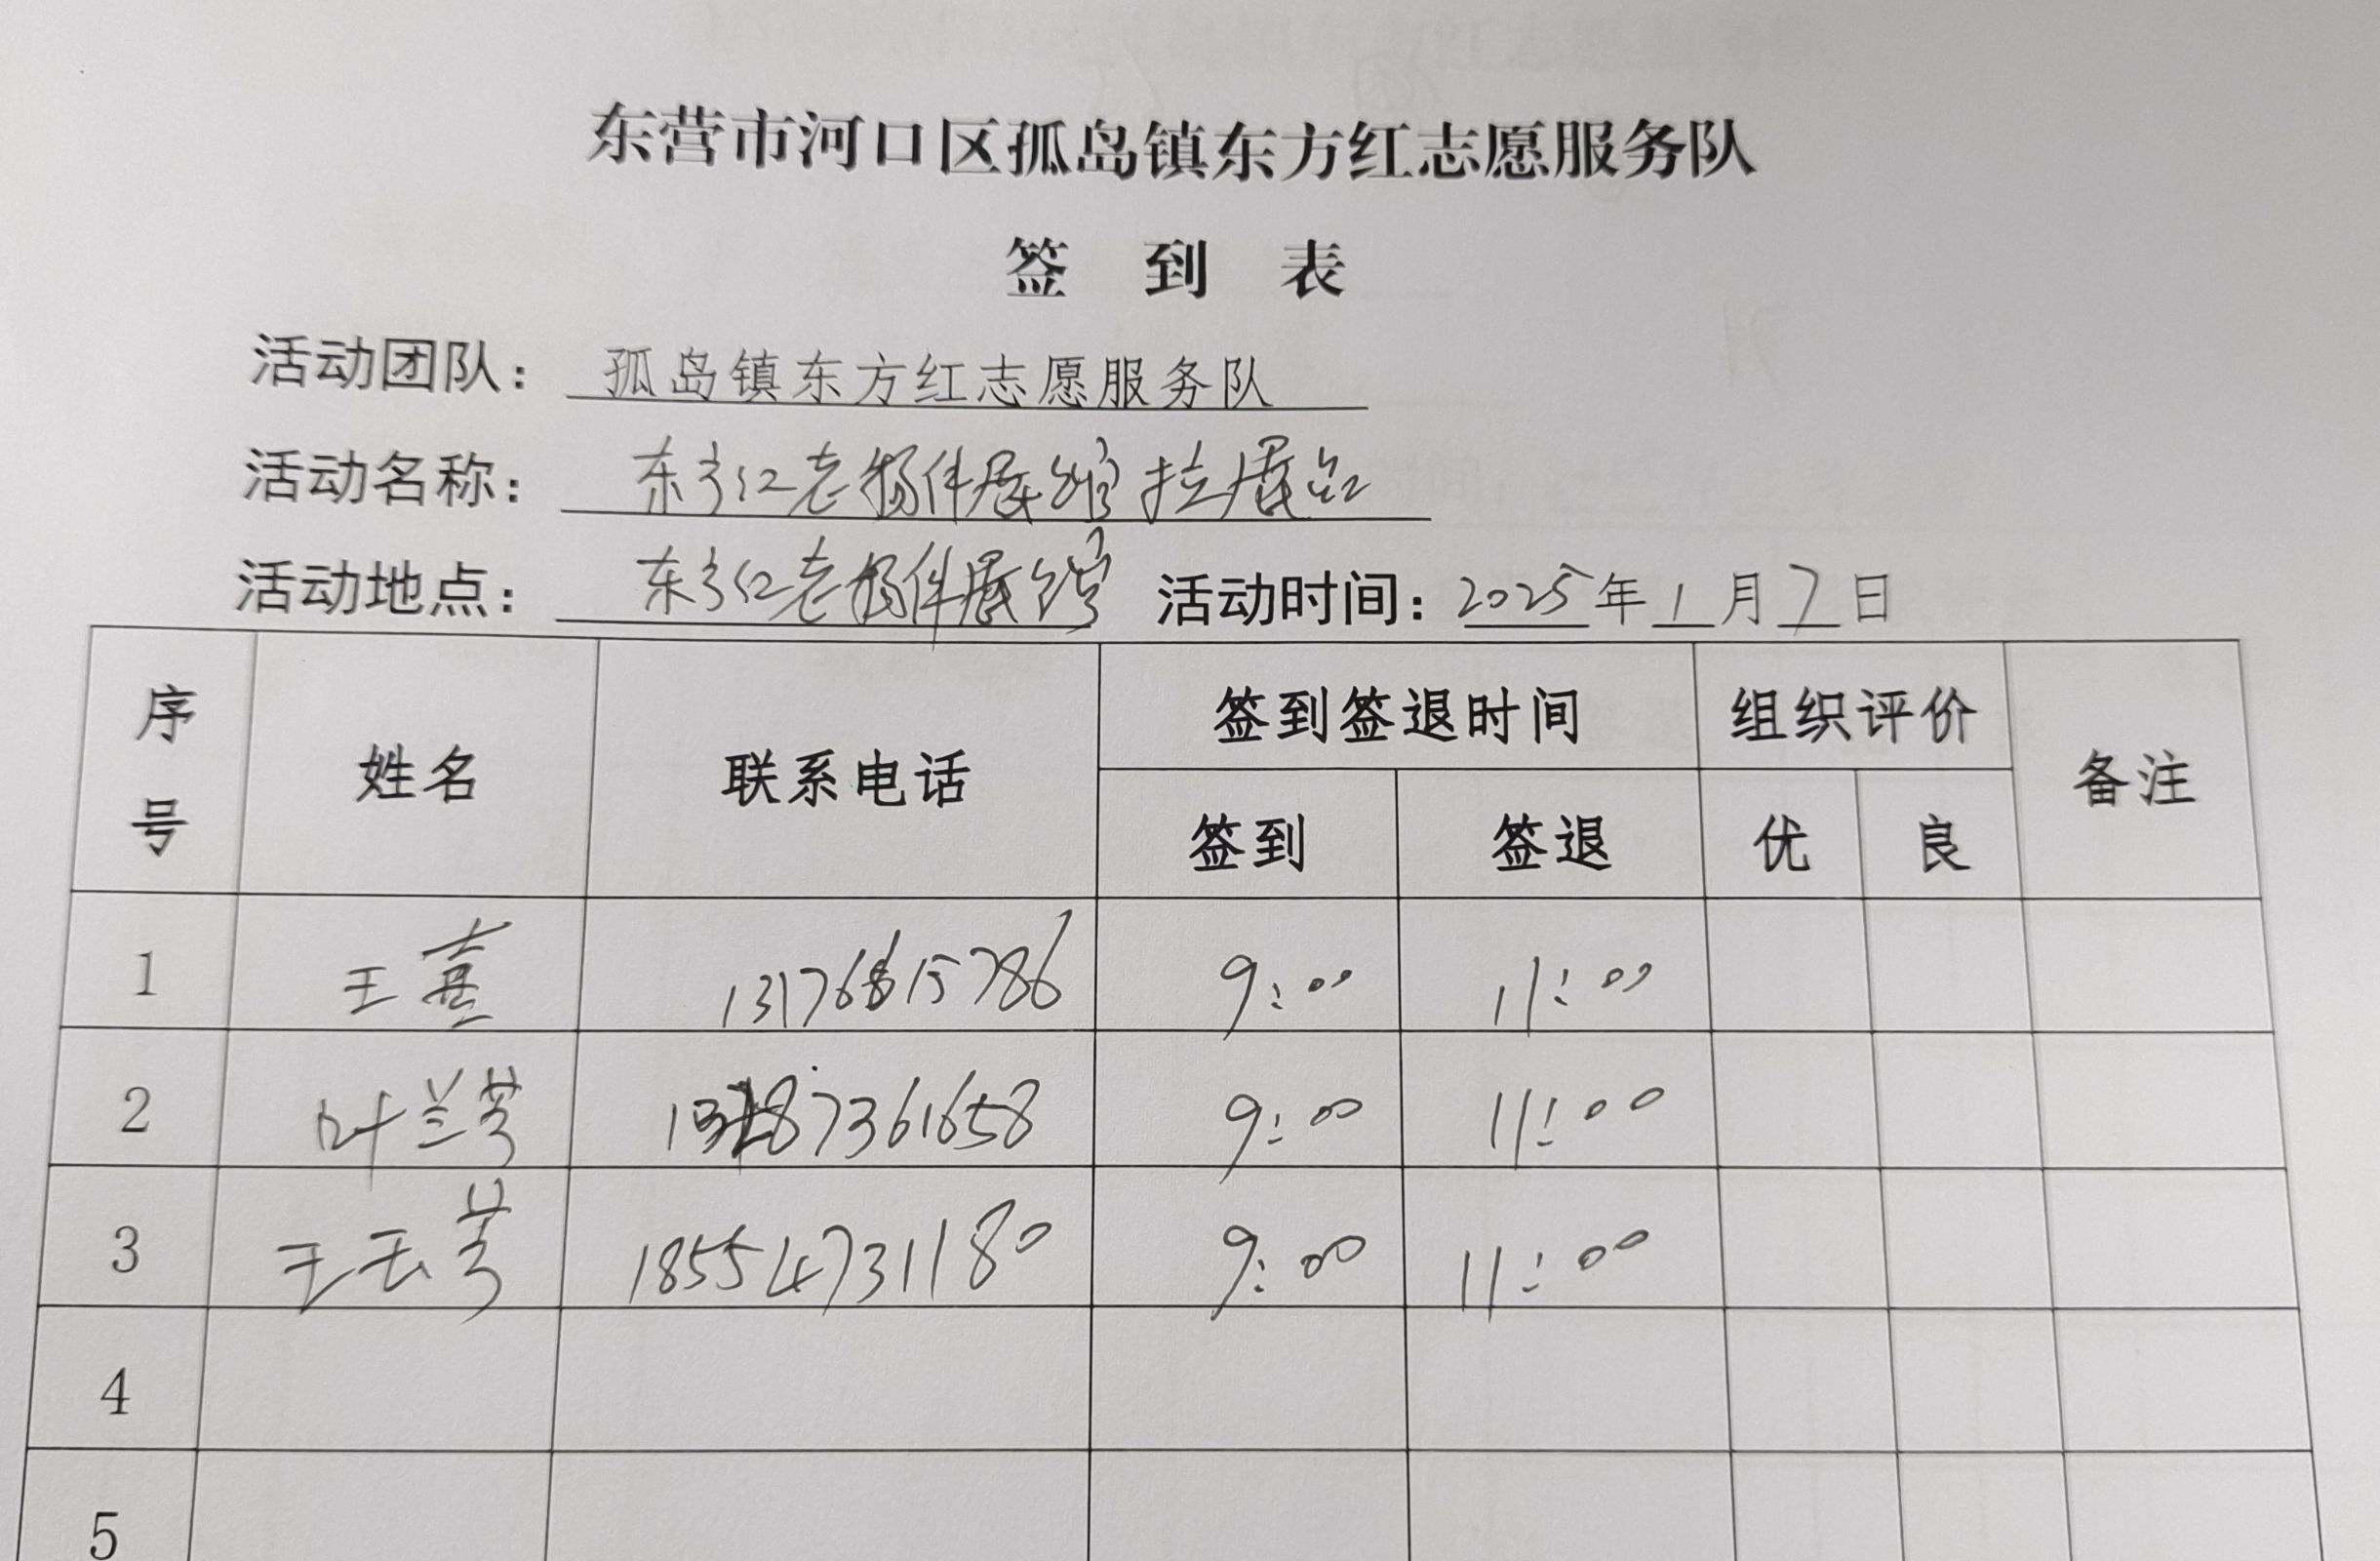 东营市河口区孤岛镇东方红志愿服务队
签 到 表
活动团队： 孤岛镇东方红志愿服务队
活动名称： 东方红老物件展馆拉展品
活动地点： 东方红老物件展馆 活动时间：2025年1月7日
序号 姓名 联系电话 签到签退时间 组织评价 备注
签到 签退 优 良
1 王 9:00 11:00
2 叶兰芳 9:00 11:00
3 王玉芳 18554731180 9:00 11:00
4
5